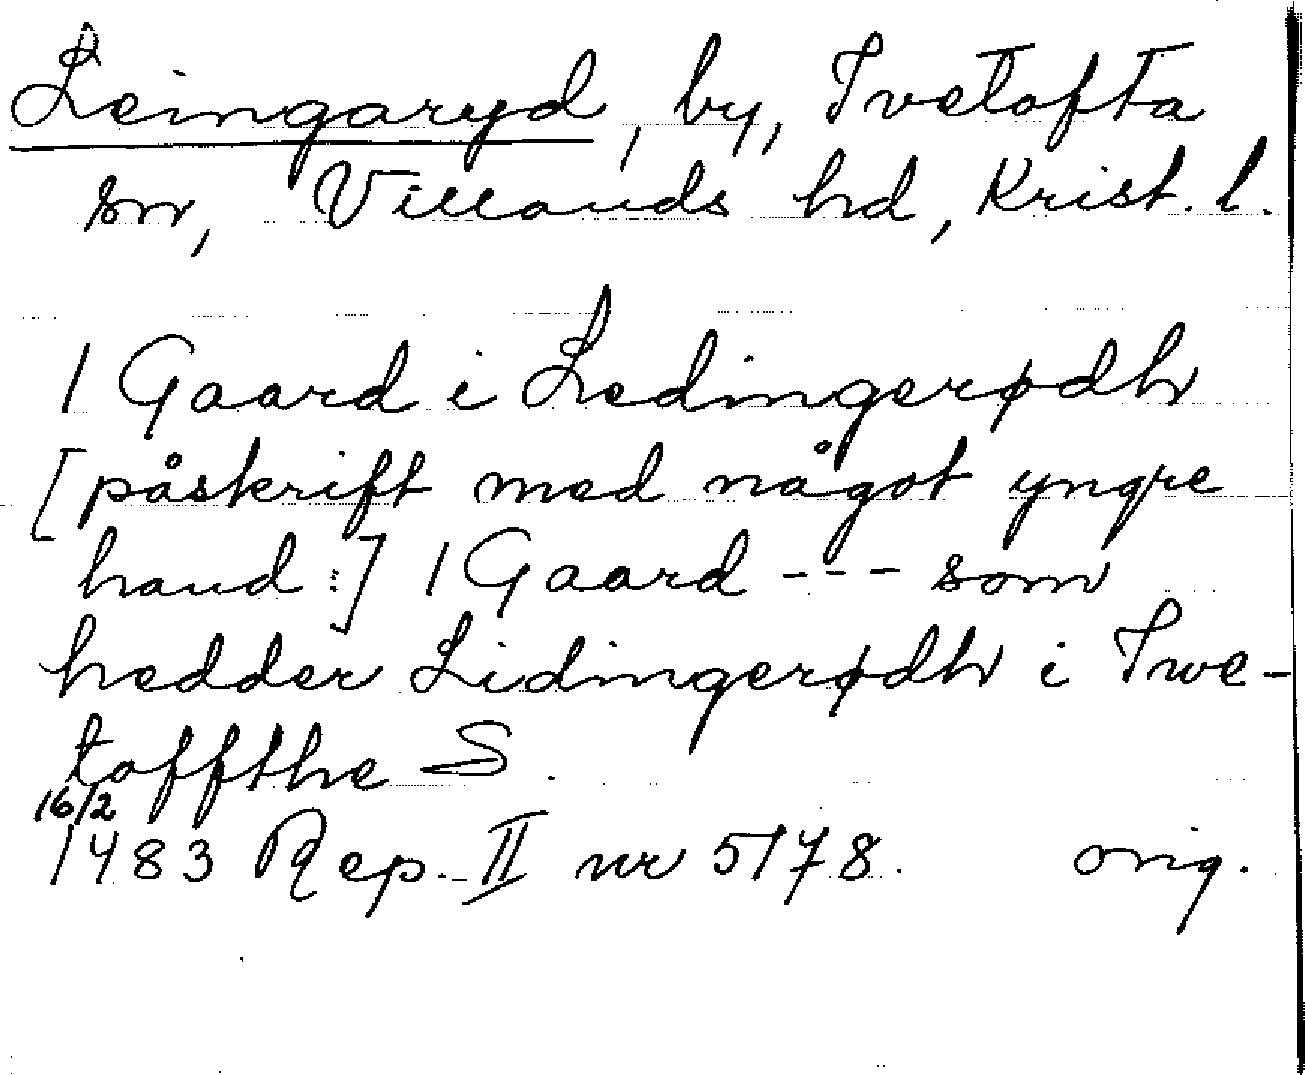 Leingaryd, by, Tvetofta
sn, Villands hd, Krist. l.
1 Gaard i Ledingerødh
[påskrift med något yngre
hand:] 1 Gaard --- som
hedder Lidingerødh i Twe-
toffthe S.
16/2
1483 Rep. II nr 5178. orig.